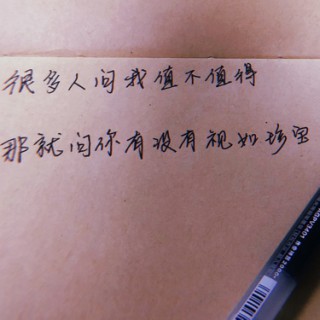 很多人问我值不值得
那就问你有没有视如珍宝